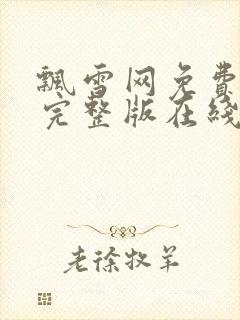 飘雪网免费
完整版在线
老徐牧羊